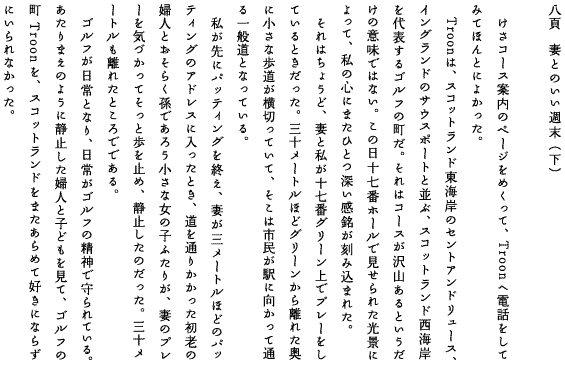 八頁　妻とのいい週末（下）
　けさコース案内のページをめくって、Troonへ電話をして
みてほんとによかった。
　Troonは、スコットランド東海岸のセントアンドリュース、
イングランドのサウスポートと並ぶ、スコットランド西海岸
を代表するゴルフの町だ。それはコースが沢山あるというだ
けの意味ではない。この日十七番ホールで見せられた光景に
よって、私の心にまたひとつ深い感銘が刻み込まれた。
　それはちょうど、妻と私が十七番グリーン上でプレーをし
ているときだった。三十メートルほどグリーンから離れた奥
に小さな歩道が横切っていて、そこは市民が駅に向かって通
る一般道となっている。
　私が先にパッティングを終え、妻が三メートルほどのパッ
ティングのアドレスに入ったとき、道を通りかかった初老の
婦人とおそらく孫であろう小さな女の子ふたりが、妻のプレ
ーを気づかってそっと歩を止め、静止したのだった。三十メ
ートルも離れたところでである。
　ゴルフが日常となり、日常がゴルフの精神で守られている。
あたりまえのように静止した婦人と子どもを見て、ゴルフの
町Troonを、スコットランドをまたあらめて好きにならず
にいられなかった。